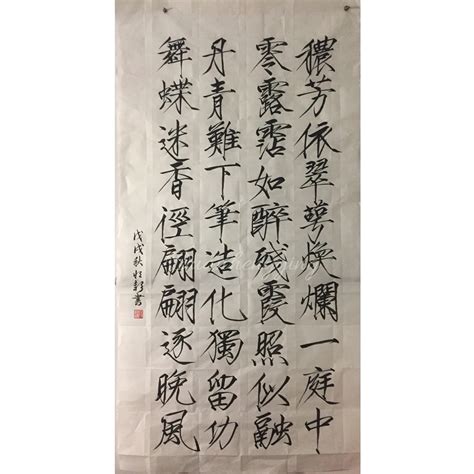 穠芳依翠萼煥爛一庭中
零露霑如醉殘霞照似融
丹青難下筆造化獨留功
舞蝶迷香徑翩翩逐晚風
戊戌秋
書